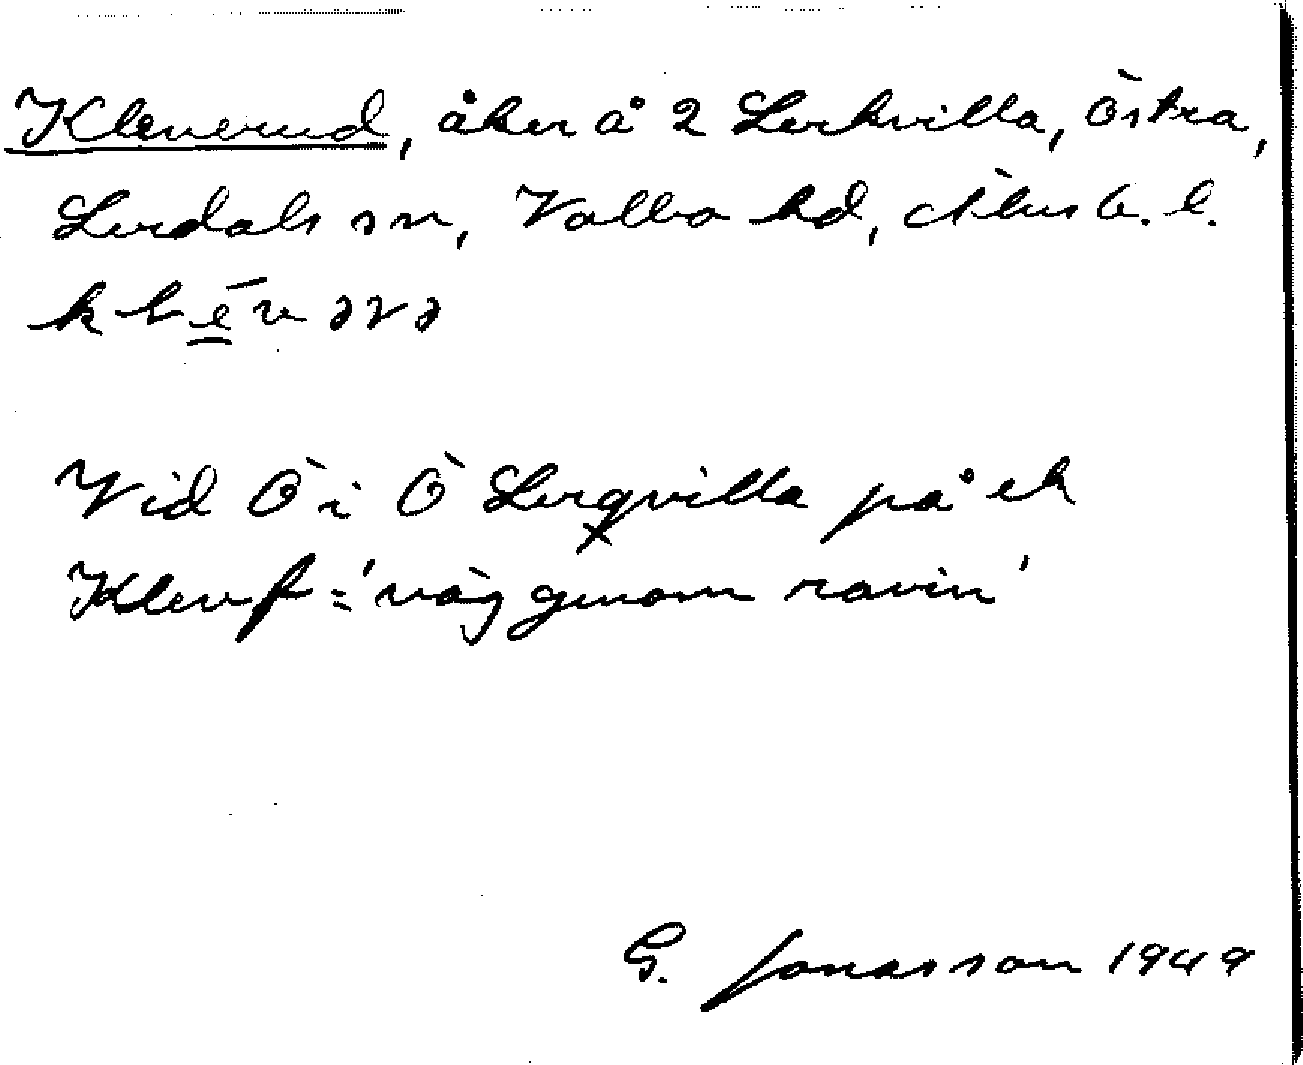 Kleverud, åker å 2 Lerkvilla, Östra,
Lerdals sn, Valbo hd, Älvsb. l.
klēvərə
Vid Ö i Ö Lerqvilla på ek
Klev f = 'väg genom ravin'
x
G. Jonasson 1949